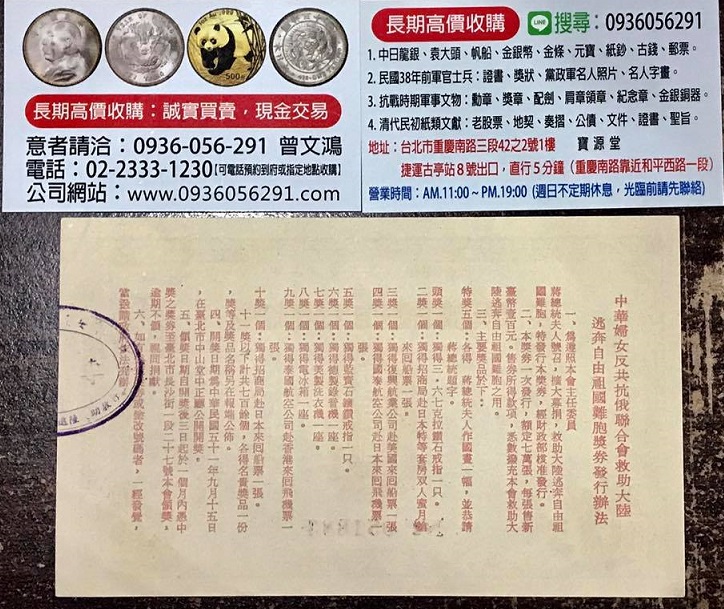 長期高價收購：誠實買賣，現金交易
意者請洽：0936-056-291 曾文鴻
電話：02-2333-1230【可電話預約到府或指定地點收購】
公司網站：www.0936056291.com
500元
長期高價收購 LINE 搜尋：0936056291
1. 中日龍銀、袁大頭、帆船、金銀幣、金條、元寶、紙鈔、古錢、郵票。
2. 民國38年前軍官士兵：證書、獎狀、黨政軍名人照片、名人字畫。
3. 抗戰時期軍事文物：勳章、獎章、配劍、肩章領章、紀念章、金銀銅器。
4. 清代民初紙類文獻：老股票、地契、奏摺、公債、文件、證書、聖旨。
地址：台北市重慶南路三段42之2號1樓 寶源堂
捷運古亭站8號出口，直行5分鐘（重慶南路靠近和平西路一段）
營業時間：AM.11:00～PM.19:00（週日不定期休息，光臨前請先聯絡）
中華婦女反共抗俄聯合會救助大陸
逃奔自由祖國難胞獎券發行辦法
一、為遵照本會主任委員
蔣總統夫人號召，擴大募捐，救助大陸逃奔自由祖
國難胞，特發行本獎券，經財政部核准發行。
二、本獎券一次發行，額定七萬張，每張售新
臺幣壹百元。售券所得款項，悉數撥充本會救助大
陸逃奔自由祖國難胞之用。
三、主要獎品於下：
特獎五個：各得 蔣總統夫人作國畫一幅，並恭請
蔣總統題字。
頭獎一個：獨得三．六七克拉鑽石戒指一只。
二獎一個：獨得招商局赴日本特等套房双人蜜月艙
來回船票一張。
三獎一個：獨得復興航業公司赴美國來回船票一張
四獎一個：獨得國泰航空公司赴日本來回飛機票一
張。
五獎一個：獨得藍寶石鑲鑽戒指一只。
六獎一個：獨得德製錄音機一座。
七獎一個：獨得美製洗衣機一座。
八獎一個：獨得電冰箱一座。
九獎一個：獨得泰國航空公司赴香港來回飛機票一
張。
十獎一個：獨得招商局赴日本來回船票一張。
十一獎以下計共七百餘個，各得名貴獎品一份
，獎等及獎品名稱另在報端公佈。
四、開獎日期為中華民國五十一年九月十五日
，在臺北市中山堂中正廳公開開獎。
五、領獎日期自開獎後三日起於一個月內憑中
獎之獎券至臺北市長沙街一段二十七號本會領獎。
逾期不領，視同捐獻。
六、如有
券或塗改號碼者，一經發覺，